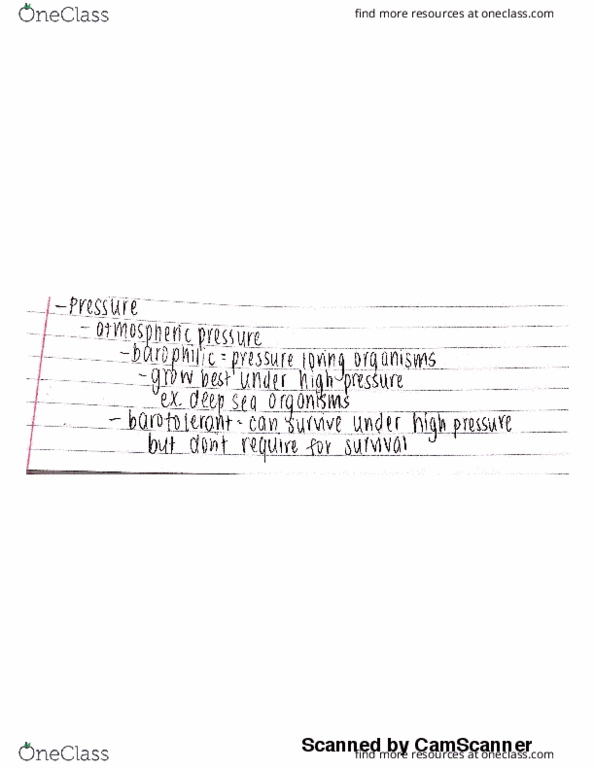 OneClass
find more resources at oneclass.com
- Pressure
- atmospheric pressure
- barophilic = pressure loving organisms
- grow best under high pressure
ex. deep sea organisms
- barotolerant = can survive under high pressure
but dont require for survival
Scanned by CamScanner
OneClass
find more resources at oneclass.com